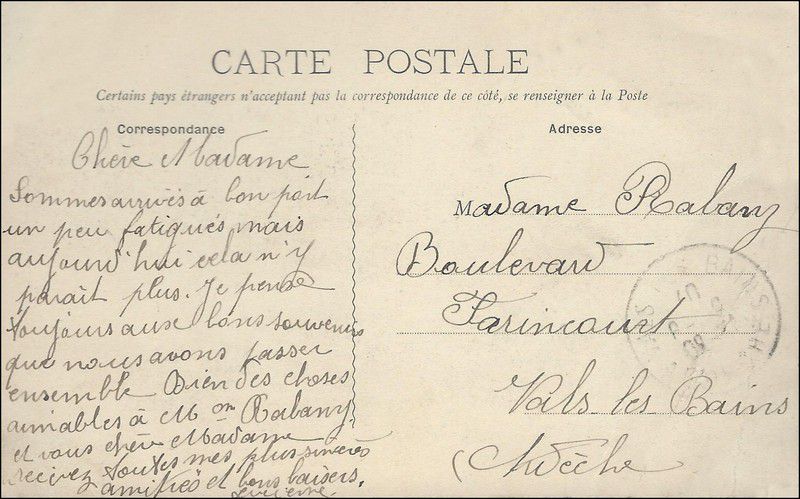 CARTE POSTALE
Certains pays étrangers n'acceptant pas la correspondance de ce côté, se renseigner à la Poste
Correspondance
Chère Madame
Sommes arrivés à bon port
un peu fatigués mais
aujourd'hui cela n'y
parait plus. Je pense
toujours aux bons souvenirs
que nous avons passer
ensemble Bien des choses
aimables à Mon Rabany
et vous chère Madame
recevez toutes mes plus sincères
amitiés et bons baisers.
Adresse
Madame Rabany
Boulevard
Farincourt
Vals les Bains
Ardèche
BAINS